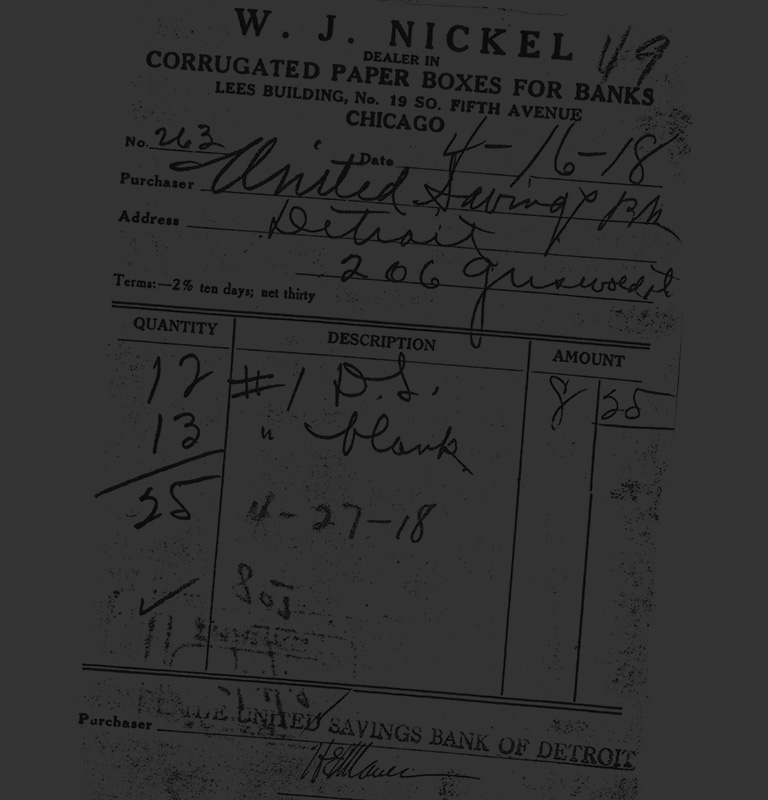 W. J. NICKEL 49
DEALER IN
CORRUGATED PAPER BOXES FOR BANKS
LEES BUILDING, No. 19 SO. FIFTH AVENUE
CHICAGO
No. 263 Date 4-16-18
Purchaser United Savings Bk
Address Detroit
206 Griswold St
Terms:—2% ten days; net thirty
QUANTITY DESCRIPTION AMOUNT
12 #1 D.S. 8 25
13 " blank
25
4-27-18
805
Purchaser THE UNITED SAVINGS BANK OF DETROIT